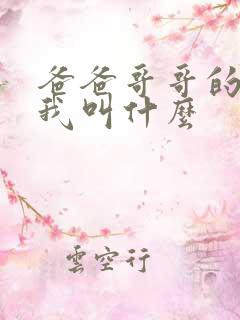 爸爸哥哥的
我叫什麼
雲空行